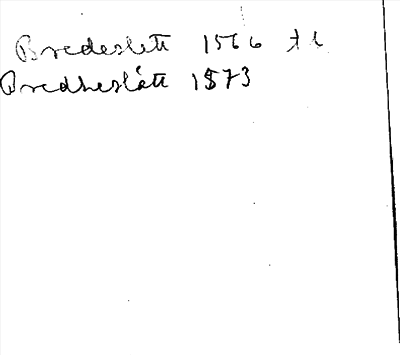 Bredeslett 1566 tl
Bredheslått 1573